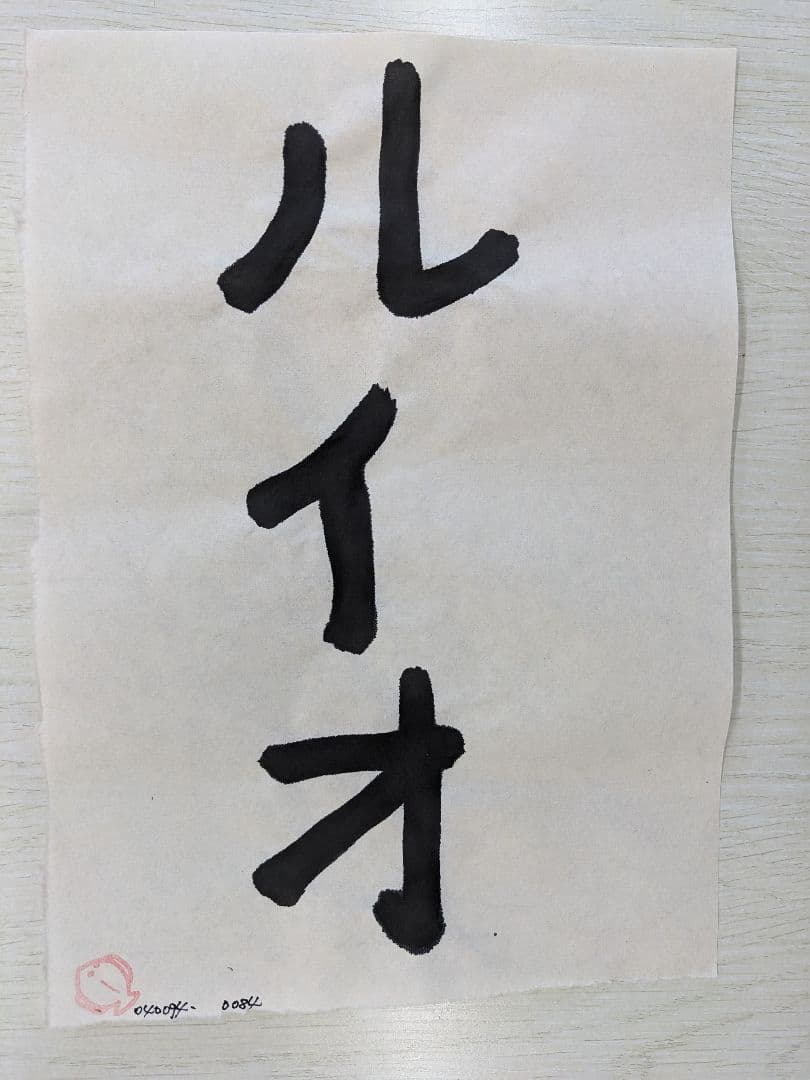 ルイオ
040094- 0084